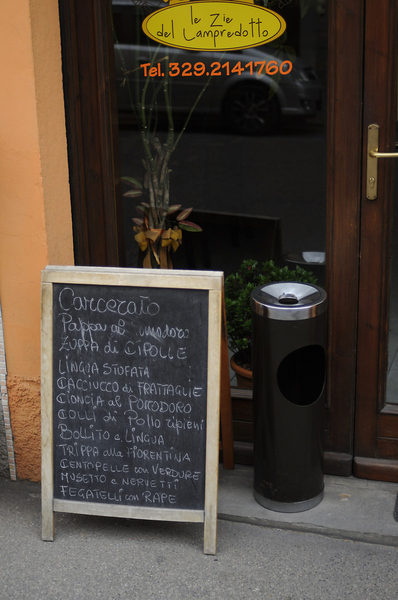 le Zie
del Lampredotto
Tel. 329.2141760
Carcerato
Pappa al pomodoro
ZUPPA di CIPOLLE
LINGUA STUFATA
CACCIUCCO di FRATTAGLIE
CIONCIA al POMODORO
COLLI di Pollo ripieni
BOLLITO e LINGUA
TRIPPA alla FIORENTINA
CENTOPELLE con VERDURE
MUSETTO e NERVETTI
FEGATELLI con RAPE